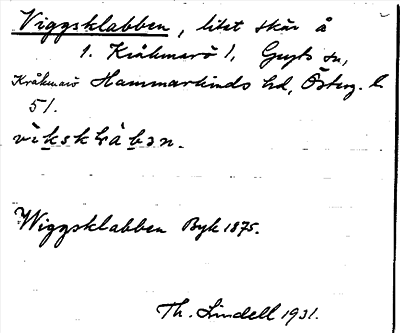 Viggsklabben, litet skär å
1. Kråkmarö 1, Gryts sn,
Kråkmarö Hammarkinds hd, Österg. l.
51.
Wiggsklabben Byk 1875.
Th. Lindell 1931.